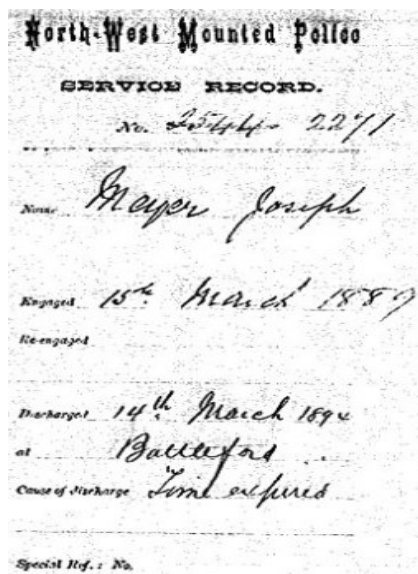 North-West Mounted Police
SERVICE RECORD.
No. 2544 2271
Name Mayer Joseph
Engaged 15th March 1889
Re-engaged
Discharged 14th March 1894
at Battleford
Cause of discharge Time expired
Special Ref.: No.